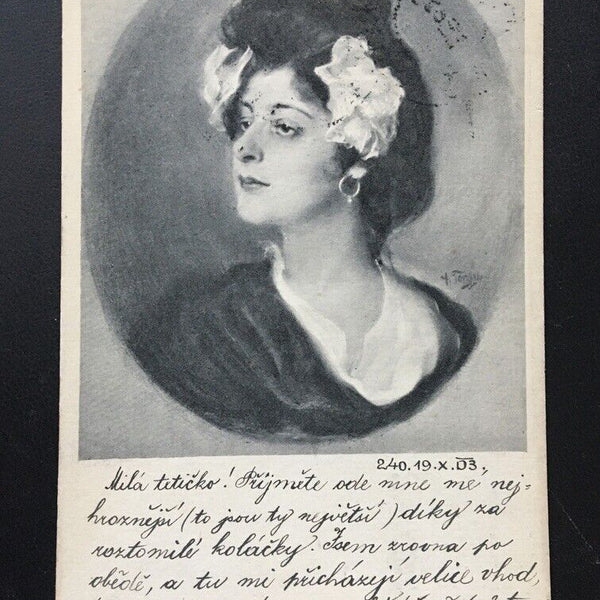 240. 19. X. 03.
Milá tetičko! Přijměte ode mne mé nej-
hroznější (to jsou ty největší) díky za
roztomilé koláčky. Jsem zrovna po
obědě, a tu mi přicházejí velice vhod,